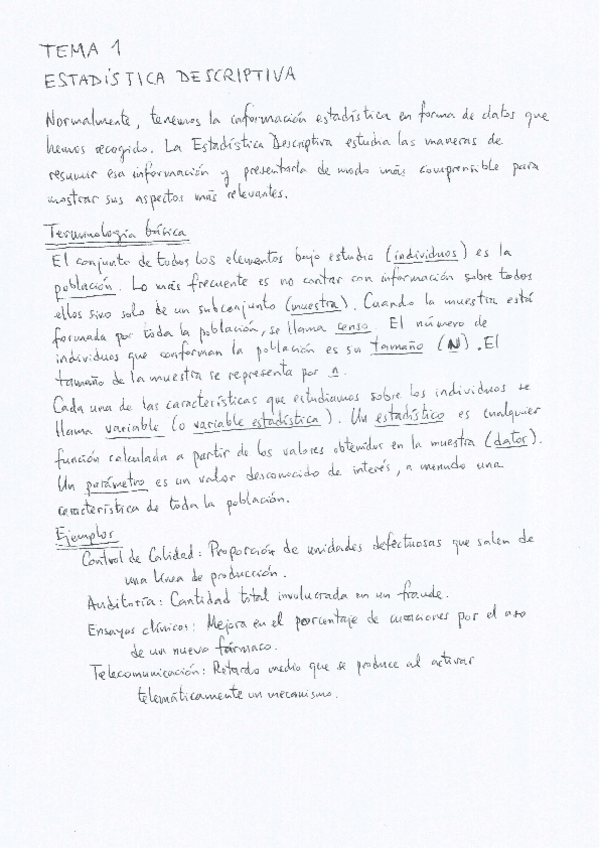 TEMA 1
ESTADÍSTICA DESCRIPTIVA
Normalmente, tenemos la información estadística en forma de datos que
hemos recogido. La Estadística Descriptiva estudia las maneras de
resumir esa información y presentarla de modo más comprensible para
mostrar sus aspectos más relevantes.
Terminología básica
El conjunto de todos los elementos bajo estudio (individuos) es la
población. Lo más frecuente es no contar con información sobre todos
ellos sino solo de un subconjunto (muestra). Cuando la muestra está
formada por toda la población, se llama censo. El número de
individuos que conforman la población es su tamaño (N). El
tamaño de la muestra se representa por n.
Cada una de las características que estudiamos sobre los individuos se
llama variable (o variable estadística). Un estadístico es cualquier
función calculada a partir de los valores obtenidos en la muestra (datos).
Un parámetro es un valor desconocido de interés, a menudo una
característica de toda la población.
Ejemplos
Control de Calidad: Proporción de unidades defectuosas que salen de
una línea de producción.
Auditoría: Cantidad total involucrada en un fraude.
Ensayos clínicos: Mejora en el porcentaje de curaciones por el uso
de un nuevo fármaco.
Telecomunicación: Retardo medio que se produce al activar
telemáticamente un mecanismo.